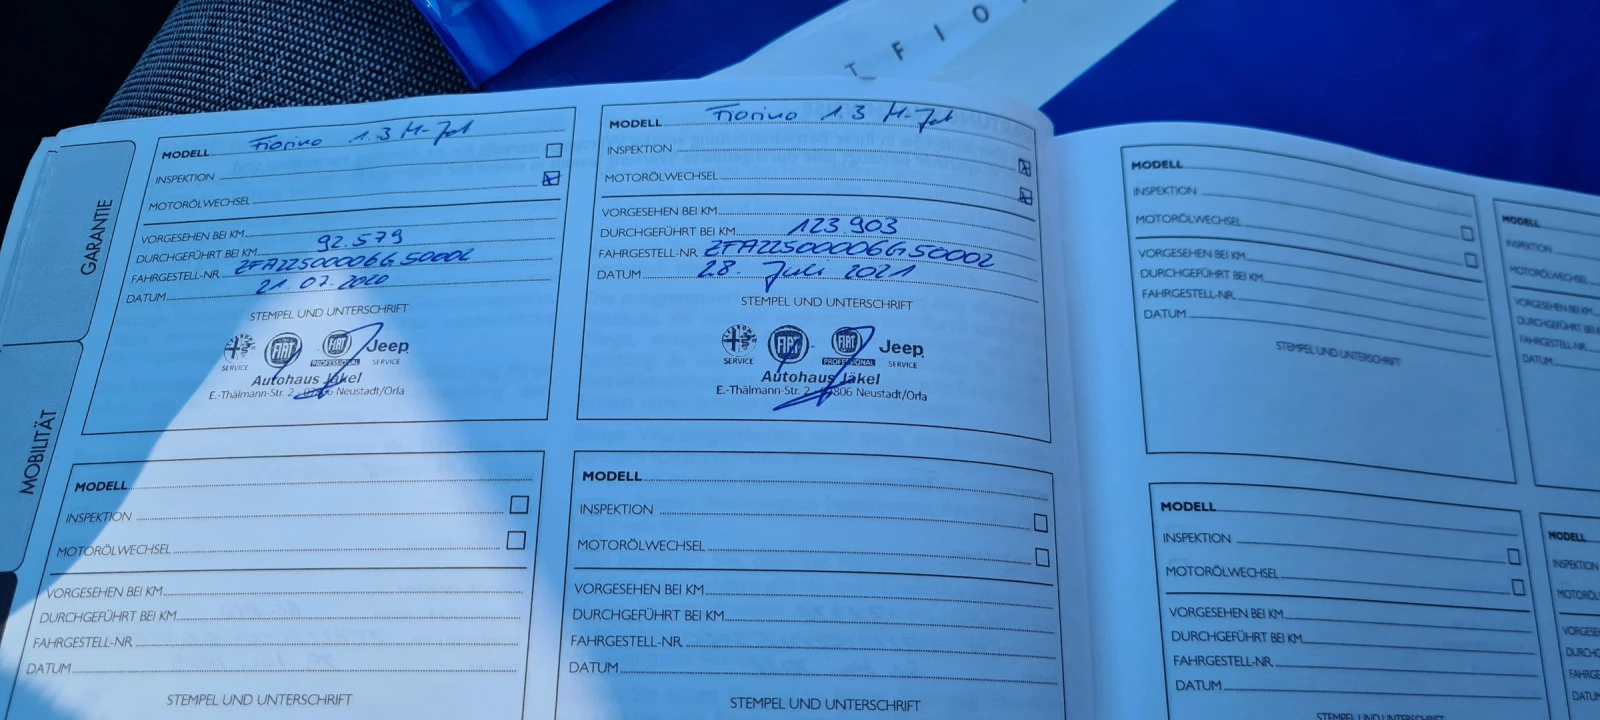 T FIO
GARANTIE
MOBILITÄT
MODELL Fiorino 1.3 M-Jet
INSPEKTION
MOTORÖLWECHSEL
VORGESEHEN BEI KM
DURCHGEFÜHRT BEI KM 92.579
FAHRGESTELL-NR. ZFA22500006G50002
DATUM 21.07.2020
STEMPEL UND UNTERSCHRIFT
SERVICE FIAT FIAT PROFESSIONAL Jeep SERVICE
Autohaus Jäkel
E.-Thälmann-Str. 2 - Neustadt/Orla
MODELL Fiorino 1.3 M-Jet
INSPEKTION
MOTORÖLWECHSEL
VORGESEHEN BEI KM
DURCHGEFÜHRT BEI KM 123.903
FAHRGESTELL-NR. ZFA22500006G50002
DATUM 28. Juli 2021
STEMPEL UND UNTERSCHRIFT
SERVICE FIAT FIAT PROFESSIONAL Jeep SERVICE
Autohaus Jäkel
E.-Thälmann-Str. 2 - 07806 Neustadt/Orla
MODELL
INSPEKTION
MOTORÖLWECHSEL
VORGESEHEN BEI KM
DURCHGEFÜHRT BEI KM
FAHRGESTELL-NR.
DATUM
STEMPEL UND UNTERSCHRIFT
MODELL
INSPEKTION
MOTORÖLWECHSEL
VORGESEHEN BEI KM
DURCHGEFÜHRT BEI KM
FAHRGESTELL-NR.
DATUM
STEMPEL UND UNTERSCHRIFT
MODELL
INSPEKTION
MOTORÖLWECHSEL
VORGESEHEN BEI KM
DURCHGEFÜHRT BEI KM
FAHRGESTELL-NR.
DATUM
STEMPEL UND UNTERSCHRIFT
MODELL
INSPEKTION
MOTORÖLWECHSEL
VORGESEHEN BEI KM
DURCHGEFÜHRT BEI KM
FAHRGESTELL-NR.
DATUM
STEMPEL UND UNTERSCHRIFT
MODELL
INSPEKTION
MOTORÖLWECHSEL
VORGESEHEN BEI KM
DURCHGEFÜHRT BEI
FAHRGESTELL-NR.
DATUM
MODELL
INSPEKTION
MOTORÖL
VORGESE
DURCHG
FAHRGE
DATU